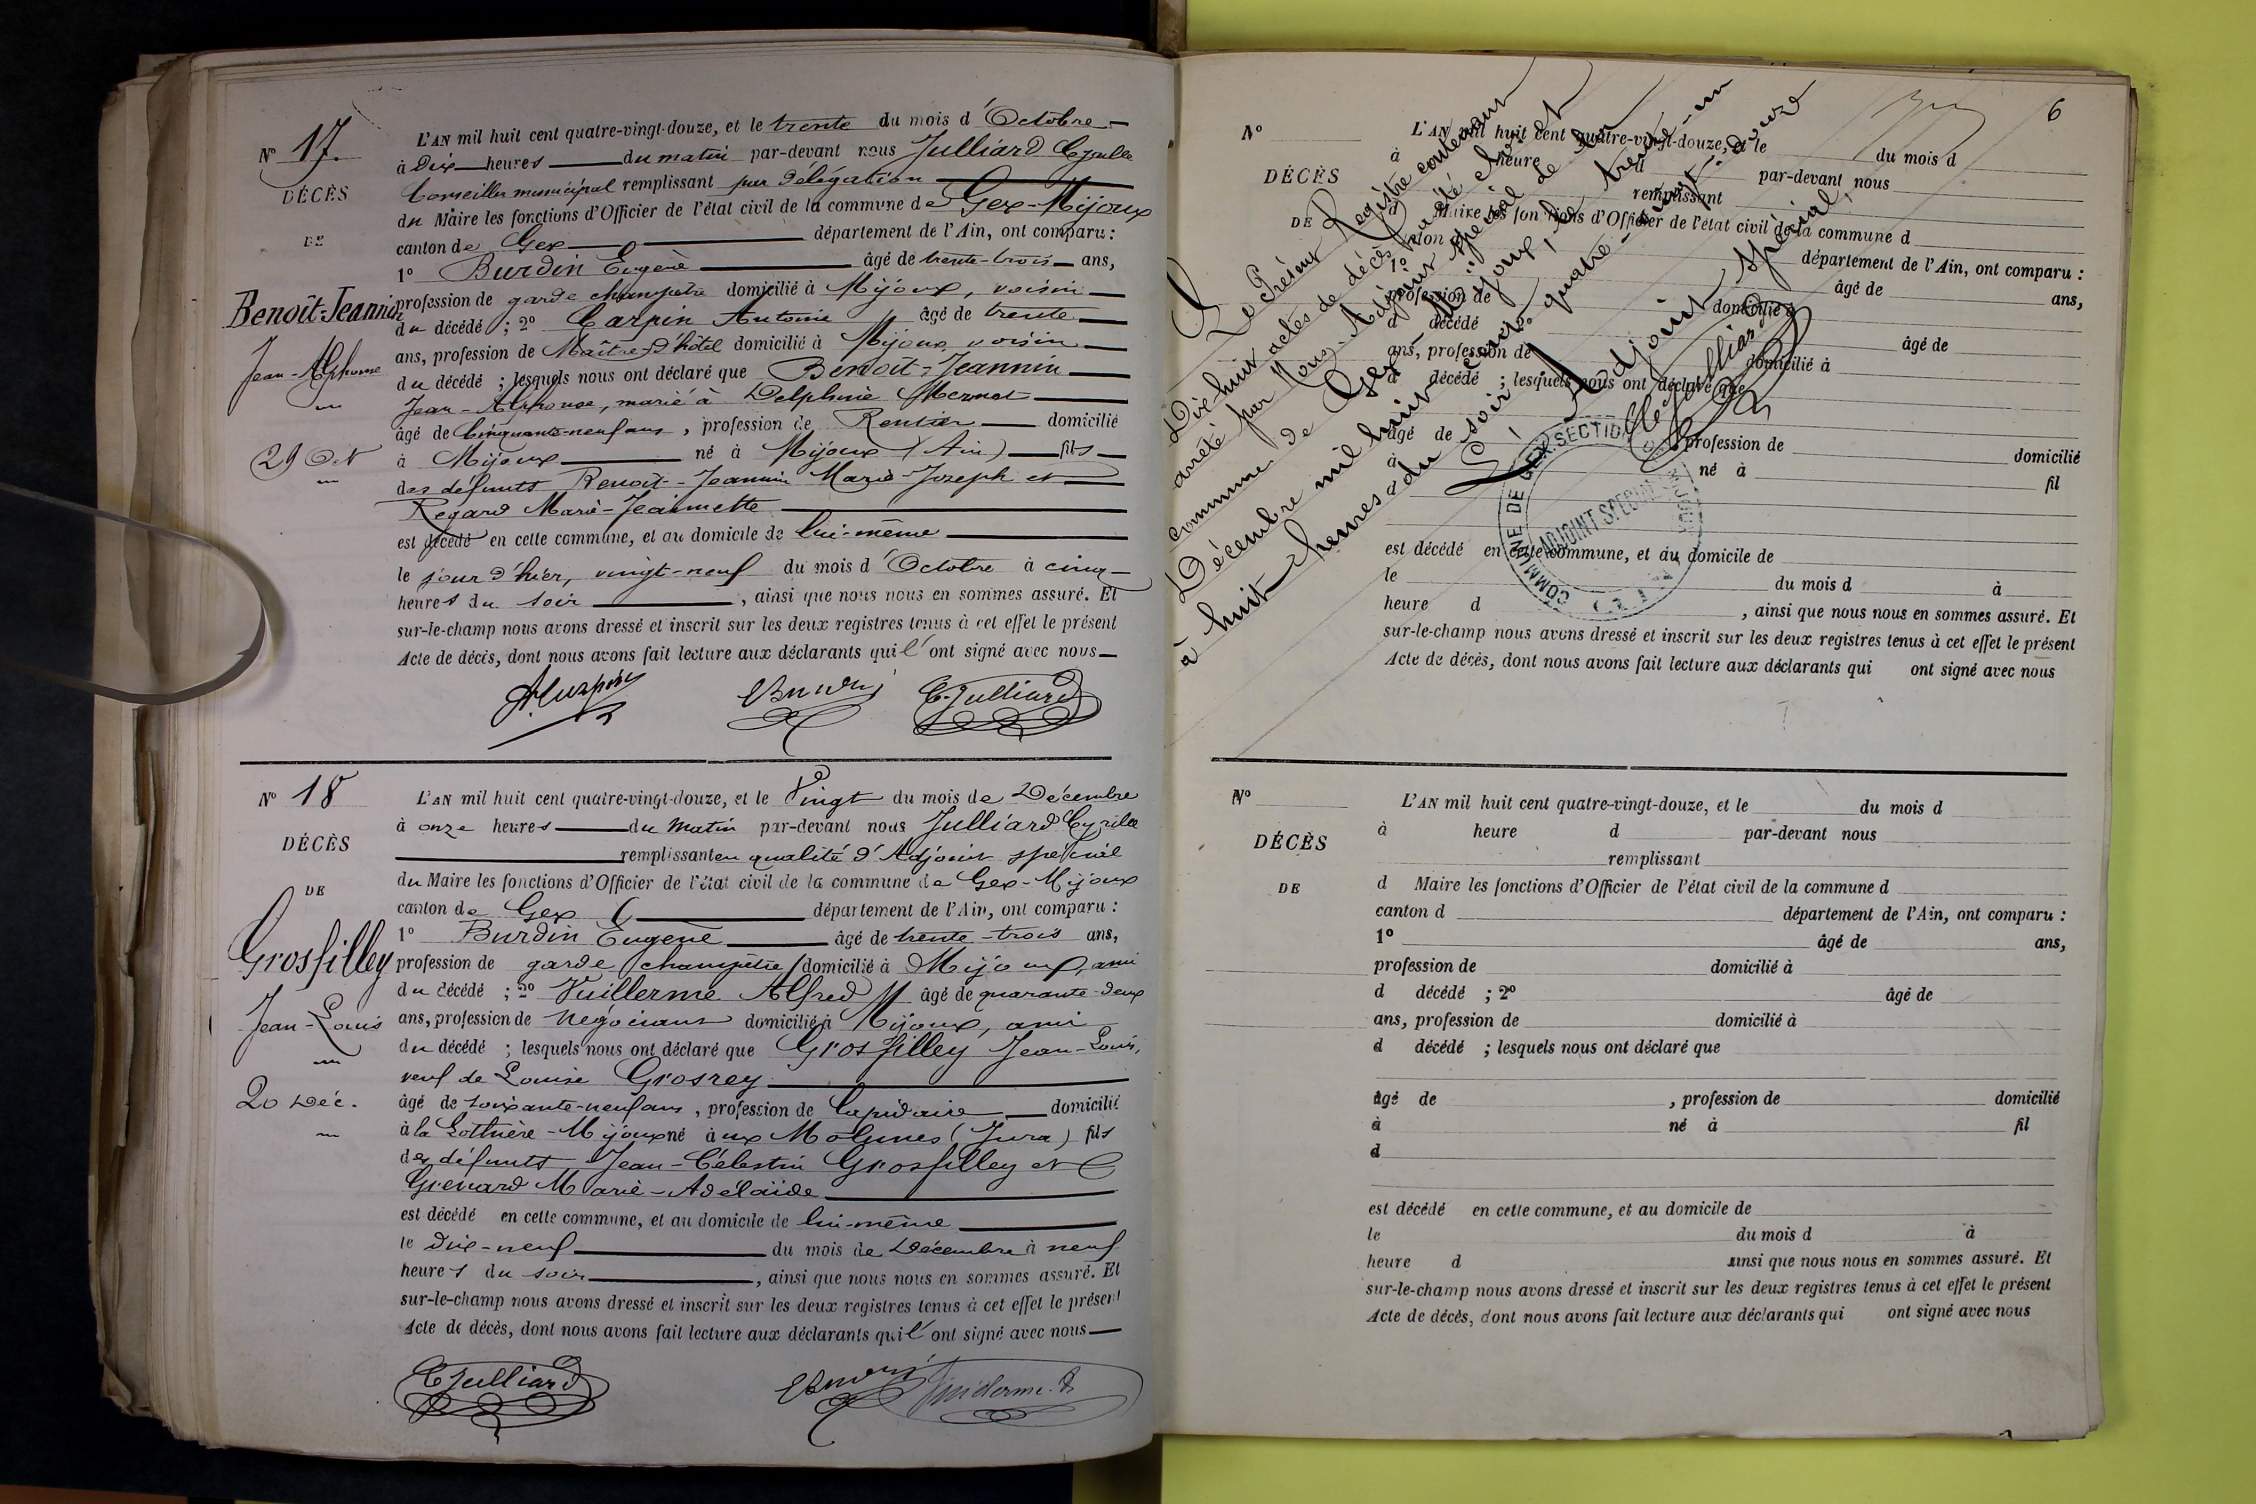 N° 17.
DÉCÈS
DE
Benoît-Jeannin
Jean-Alphonse
29 Oct
L'AN mil huit cent quatre-vingt-douze, et le trente du mois d'Octobre
à Dix heures du matin par-devant nous Julliard Cyrille
Conseiller municipal remplissant par délégation
du Maire les fonctions d'Officier de l'état civil de la commune de Gex-Mijoux
canton de Gex département de l'Ain, ont comparu :
1° Burdin Eugène âgé de trente-trois ans,
profession de garde champêtre domicilié à Mijoux, voisin
du décédé ; 2° Carpin Antoine âgé de trente
ans, profession de Maître d'hôtel domicilié à Mijoux voisin
du décédé ; lesquels nous ont déclaré que Benoît-Jeannin
Jean-Alphonse, marié à Delphine Mermet
âgé de Cinquante-neuf ans, profession de Rentier domicilié
à Mijoux né à Mijoux (Ain) fils
des défunts Benoît-Jeannin Marie-Joseph et
Regard Marie-Jeannette
est décédé en cette commune, et au domicile de lui-même
le jour d'hier, vingt-neuf du mois d'Octobre à cinq
heures du soir, ainsi que nous nous en sommes assuré. Et
sur-le-champ nous avons dressé et inscrit sur les deux registres tenus à cet effet le présent
Acte de décès, dont nous avons fait lecture aux déclarants qui l'ont signé avec nous
C. Julliard
N° 18
DÉCÈS
DE
Grosfilley
Jean-Louis
20 Déc.
L'AN mil huit cent quatre-vingt-douze, et le Vingt du mois de Décembre
à onze heures du matin par-devant nous Julliard Cyrille
remplissant en qualité d'Adjoint spécial
du Maire les fonctions d'Officier de l'état civil de la commune de Gex-Mijoux
canton de Gex département de l'Ain, ont comparu :
1° Burdin Eugène âgé de trente-trois ans,
profession de garde champêtre domicilié à Mijoux, ami
du décédé ; 2° Vuillerme Alfred âgé de quarante-deux
ans, profession de négociant domicilié à Mijoux, ami
du décédé ; lesquels nous ont déclaré que Grosfilley Jean-Louis,
veuf de Louise Grosrey
âgé de soixante-neuf ans, profession de Lapidaire domicilié
à la Mijoux né aux Molunes (Jura) fils
des défunts Jean-Célestin Grosfilley et
Grenard Marie-Adélaïde
est décédé en cette commune, et au domicile de lui-même
le Dix-neuf du mois de Décembre à neuf
heures du soir, ainsi que nous nous en sommes assuré. Et
sur-le-champ nous avons dressé et inscrit sur les deux registres tenus à cet effet le présent
Acte de décès, dont nous avons fait lecture aux déclarants qui l'ont signé avec nous
C Julliard
Vuillerme. A
6
N°
DÉCÈS
DE
L'AN mil huit cent quatre-vingt-douze, et le du mois d
à heure d par-devant nous
remplissant
d Maire les fonctions d'Officier de l'état civil de la commune d
canton d département de l'Ain, ont comparu :
1° âgé de ans,
profession de domicilié à
d décédé ; 2° âgé de
ans, profession de domicilié à
d décédé ; lesquels nous ont déclaré que
âgé de profession de domicilié
à né à fil
est décédé en cette commune, et au domicile de
le du mois d à
heure d , ainsi que nous nous en sommes assuré. Et
sur-le-champ nous avons dressé et inscrit sur les deux registres tenus à cet effet le présent
Acte de décès, dont nous avons fait lecture aux déclarants qui ont signé avec nous
Le Présent Registre contenant
Dix-huit actes de décès, a été clos et
arrêté par Nous, Adjoint spécial de la
commune de Gex-Mijoux, le trente-un
Décembre mil huit cent quatre-vingt-douze
à huit heures du soir.
L'Adjoint spécial,
Julliard
COMMUNE DE GEX SECTION
ADJOINT SPECIAL
N°
DÉCÈS
DE
L'AN mil huit cent quatre-vingt-douze, et le du mois d
à heure d par-devant nous
remplissant
d Maire les fonctions d'Officier de l'état civil de la commune d
canton d département de l'Ain, ont comparu :
1° âgé de ans,
profession de domicilié à
d décédé ; 2° âgé de
ans, profession de domicilié à
d décédé ; lesquels nous ont déclaré que
âgé de , profession de domicilié
à né à fil
d
est décédé en cette commune, et au domicile de
le du mois d à
heure d ainsi que nous nous en sommes assuré. Et
sur-le-champ nous avons dressé et inscrit sur les deux registres tenus à cet effet le présent
Acte de décès, dont nous avons fait lecture aux déclarants qui ont signé avec nous